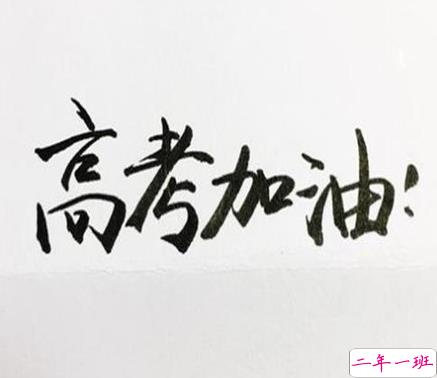 高考加油!
二年一班